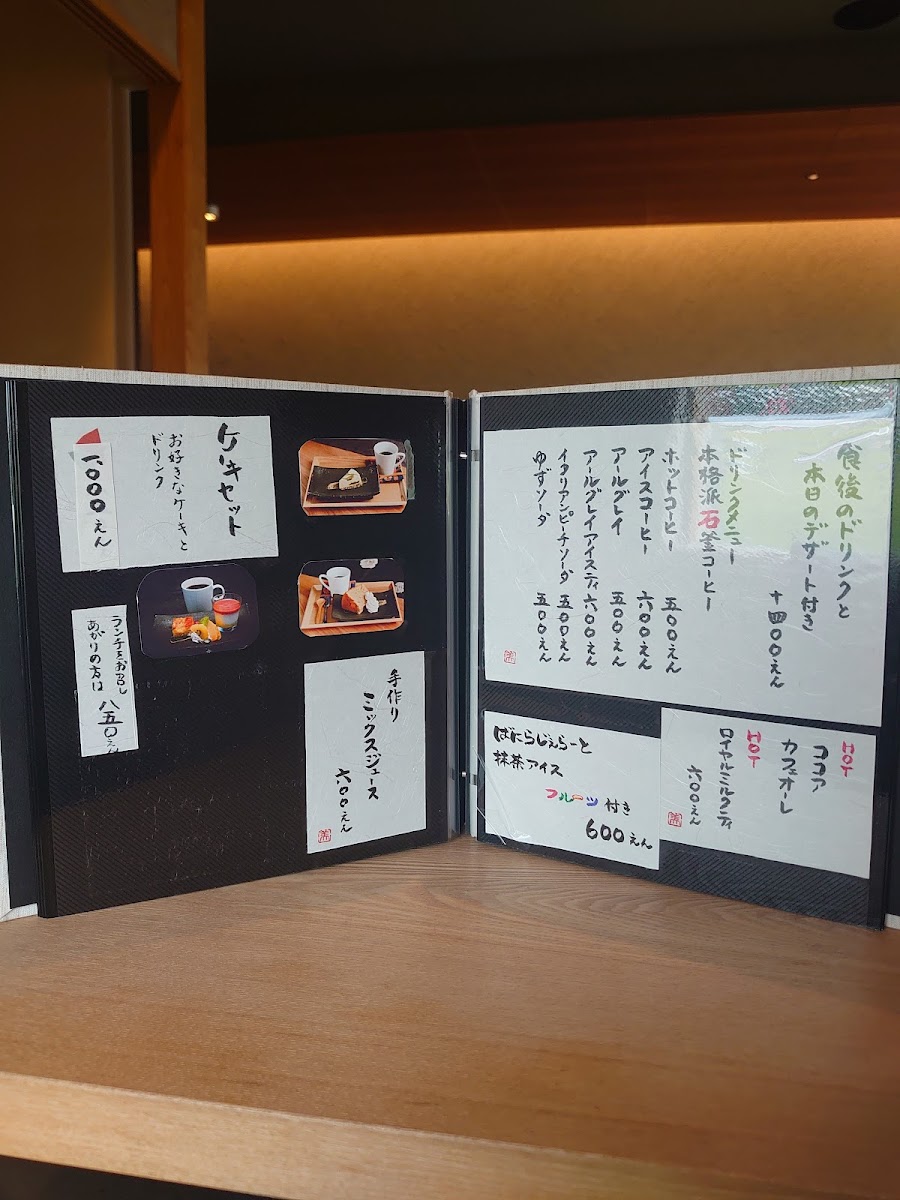 ケーキセット
お好きなケーキと
ドリンク
一〇〇〇えん
ランチをお召し
あがりの方は 八五〇えん
手作り
ミックスジュース
六〇〇えん
食後のドリンクと
本日のデザート付き
+四〇〇えん
ドリンクメニュー
本格派石釜コーヒー
ホットコーヒー 五〇〇えん
アイスコーヒー 六〇〇えん
アールグレイ 五〇〇えん
アールグレイアイスティ 六〇〇えん
イタリアンピーチソーダ 五〇〇えん
ゆずソーダ 五〇〇えん
HOT
ココア
カフェオーレ
HOT
ロイヤルミルクティ
六〇〇えん
ばにらじぇらーと
抹茶アイス
フルーツ付き
600えん